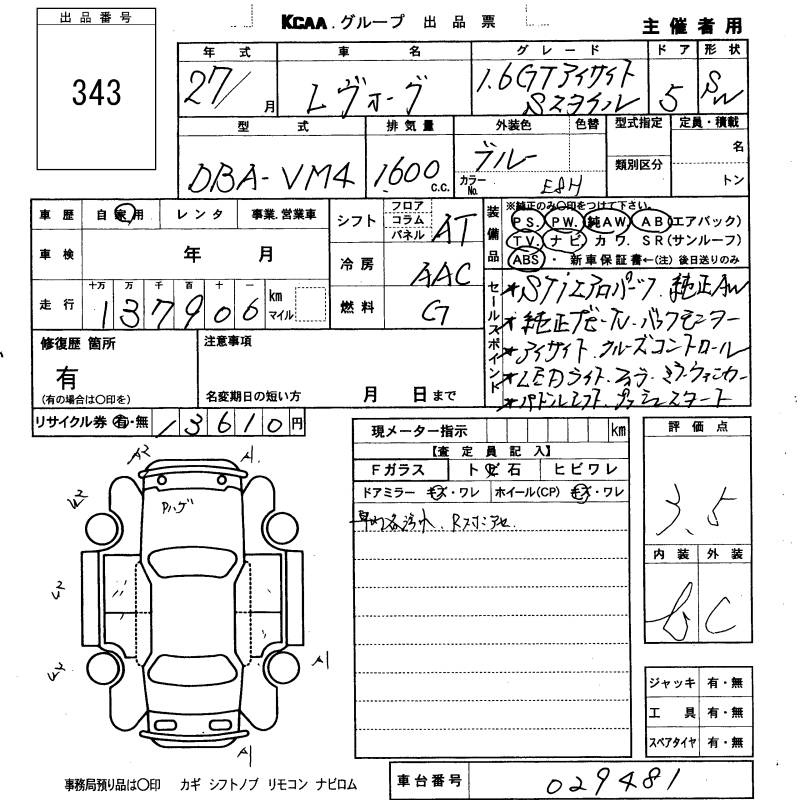 出品番号
343
KCAA.グループ 出品票
主催者用
年式 車名 グレード ドア 形状
27/ 月 レヴォーグ 1.6GTアイサイト Sスタイル 5 SW
型式 排気量 外装色 色替 型式指定 定員・積載
DBA-VM4 1,600 c.c. ブルー 名
カラーNo. E8H 類別区分 トン
車歴 自家用 レンタ 事業.営業車
シフト フロア コラム パネル AT
装備品 ※純正のみ○印をつけて下さい。
PS. PW. 純AW AB(エアバック)
TV. ナビ カワ. SR(サンルーフ)
ABS・ 新車保証書←(注)後日送りのみ
車検 年 月
冷房 AAC
走行 十万 万 千 百 十 一
137906 km マイル
燃料 G
セールスポイント
★STiエアロパーツ 純正AW
★純正ナビ-TV.バックモニター
★アイサイト.クルーズコントロール
★LEDライト.フォグ.ミラーウィンカー
★パドルシフト.プッシュスタート
修復歴 箇所
有
(有の場合は○印を)
注意事項
名変期日の短い方 月 日まで
リサイクル券 有・無 13610円
現メーター指示 km
評価点
3.5
【査定員記入】
Fガラス トビ石 ヒビワレ
ドアミラー キズ・ワレ ホイール(CP) キズ・ワレ
車内各汚れ、
内装 外装
b C
A2 A1
Pハゲ
A1
A1
ジャッキ 有・無
工具 有・無
スペアタイヤ 有・無
事務局預り品は○印 カギ シフトノブ リモコン ナビロム
車台番号 029481